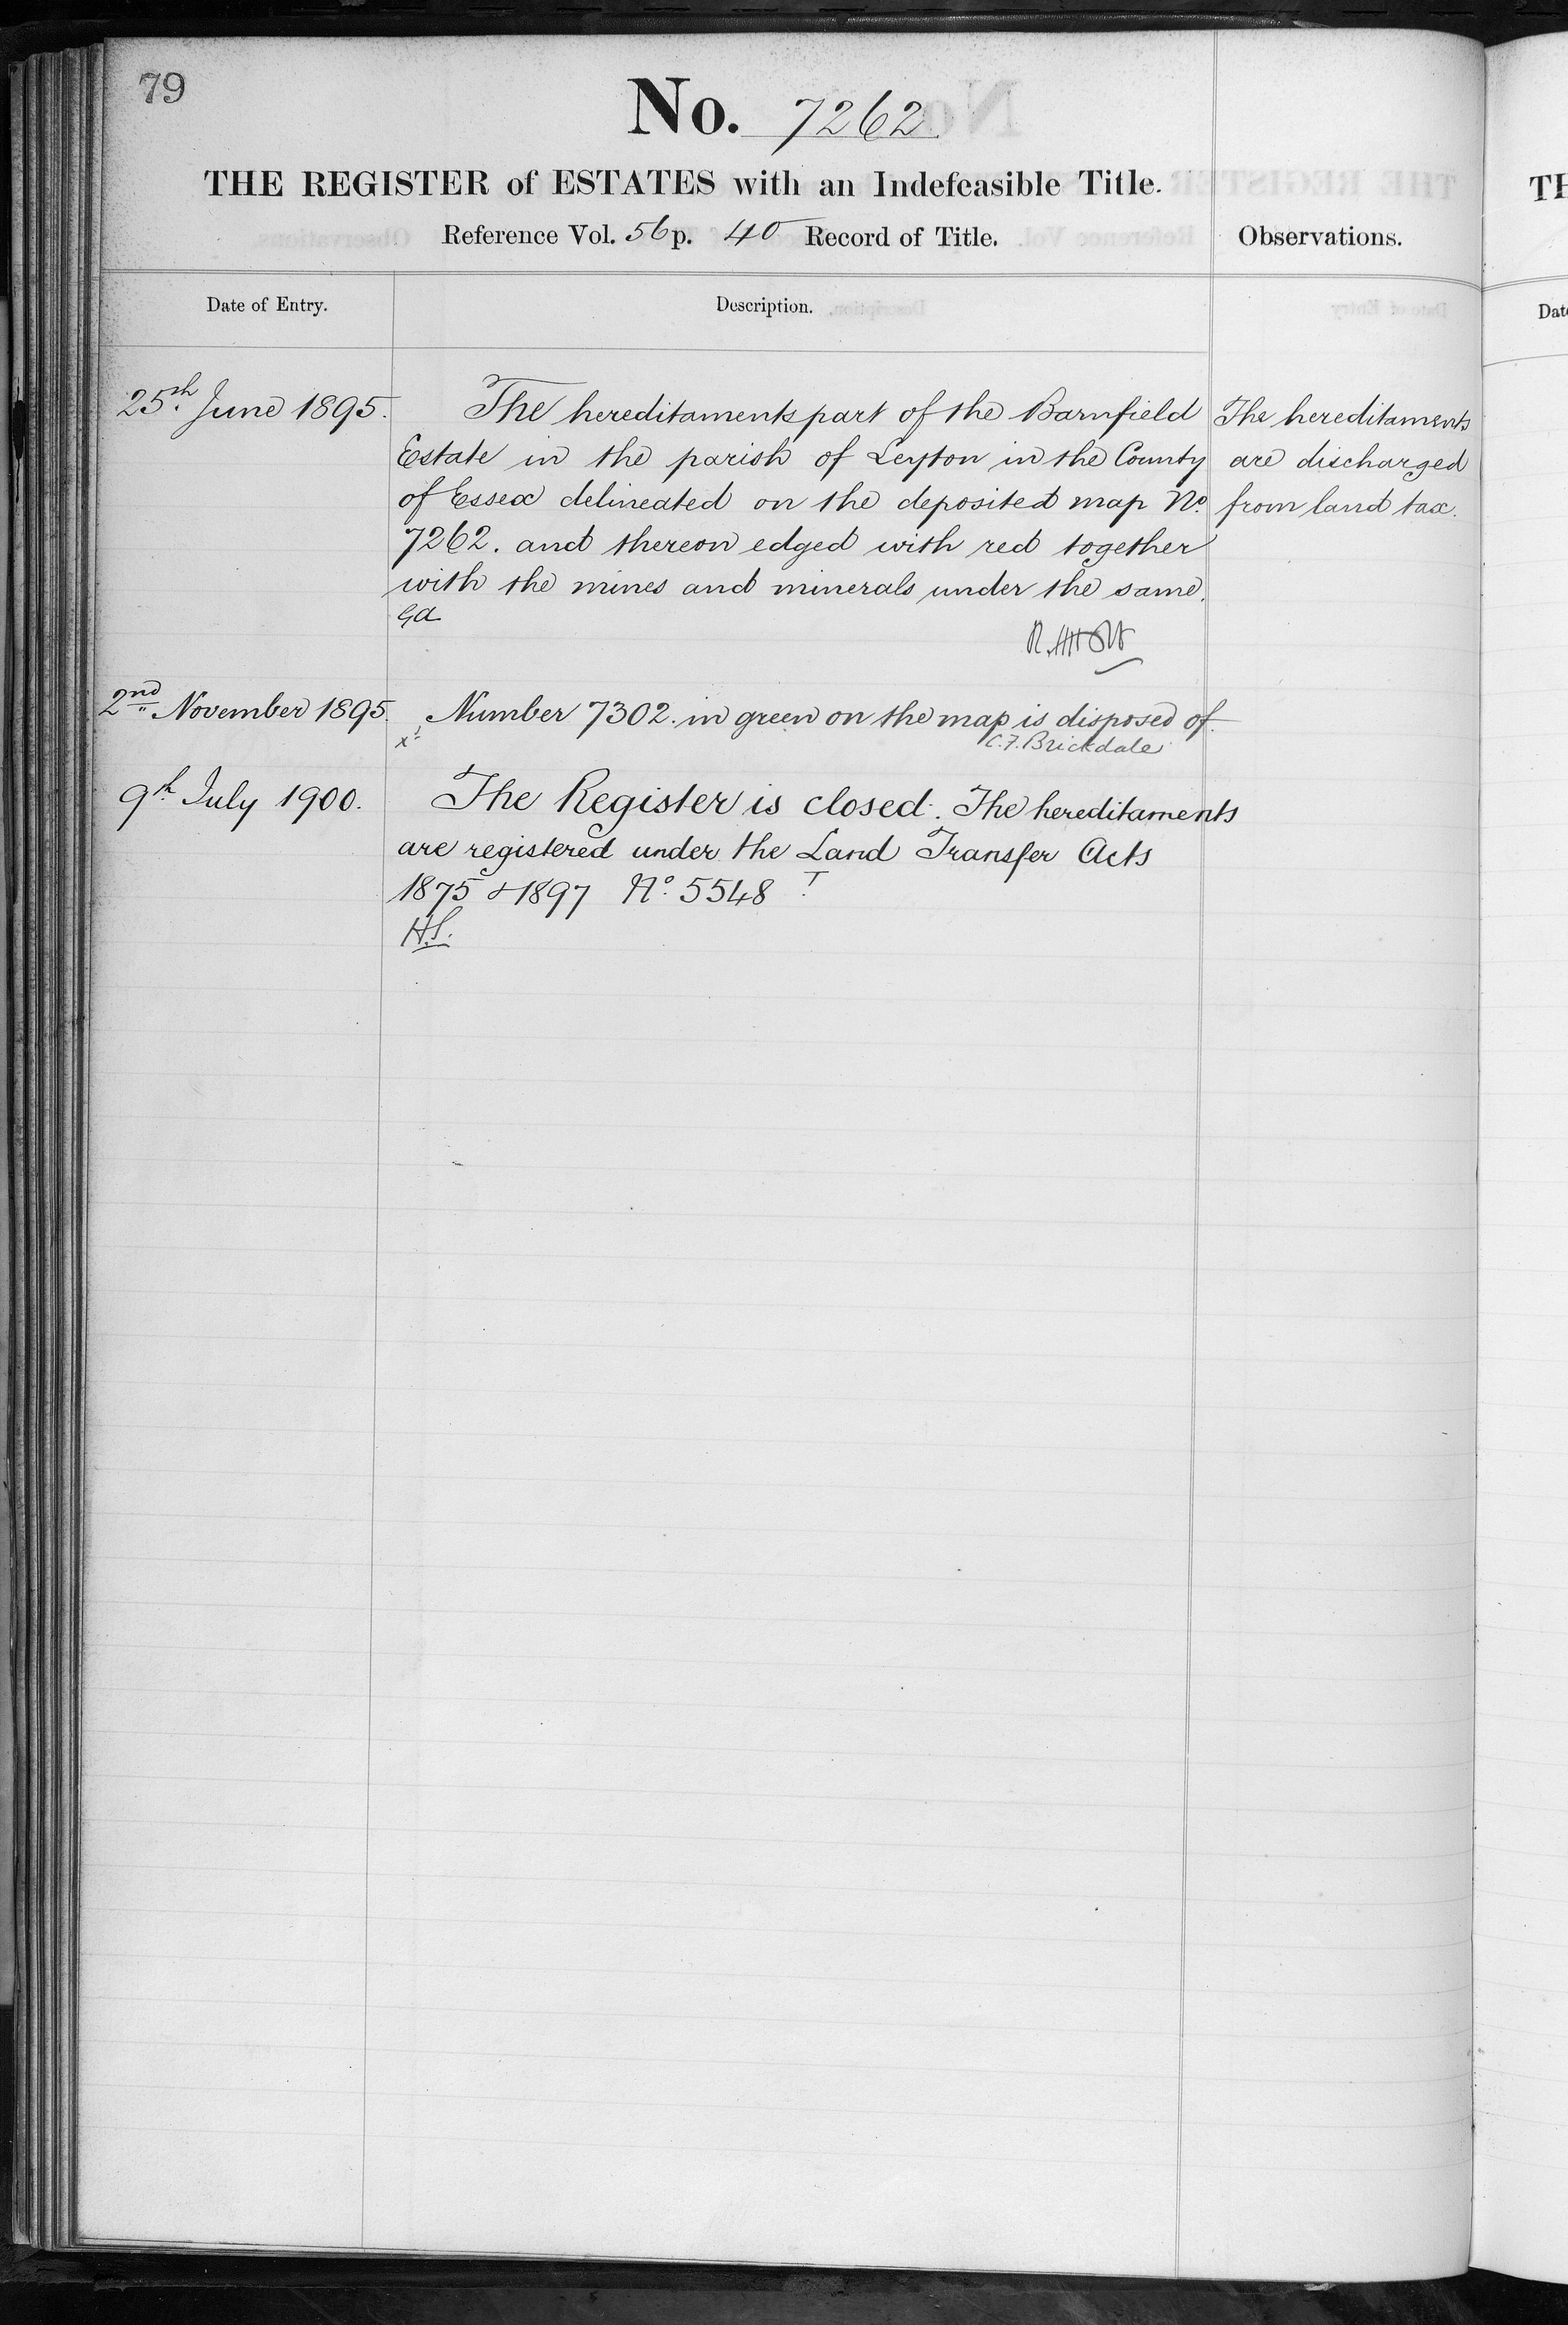 79
No. 7262
THE REGISTER of ESTATES with an Indefeasible Title.
Reference Vol. 56 p. 40 Record of Title.
Observations.
Date of Entry.
Description.
25th June 1895.
The hereditaments part of the Barnfield
Estate in the parish of Leyton in the County
of Essex delineated on the deposited map No.
7262. and thereon edged with red together
with the mines and minerals under the same.
The hereditaments
are discharged
from land tax.
2nd November 1895.
Number 7302. in green on the map is disposed of.
C. F. Brickdale
9th July 1900.
The Register is closed. The hereditaments
are registered under the Land Transfer Acts
1875 & 1897 No. 5548
H.S.
TH
Date